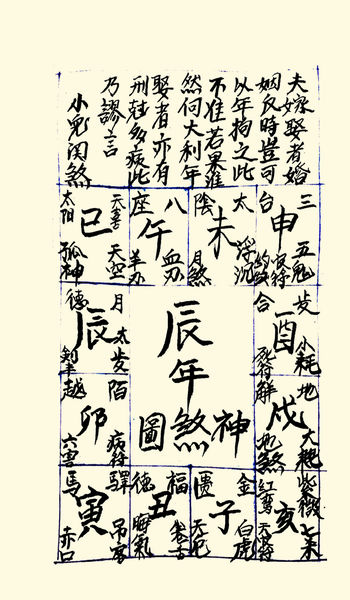 夫嫁娶者婚
姻及時豈可
以年拘之此
不准若果准
然何大利年
娶者亦有
刑尅多病此
乃謬言
小鬼関煞
三台 申 五鬼
太陰 未 浮沉 月煞
八座 午 血刃 羊刃
天喜 巳 天空 太阳 孤神
月德 辰 太歲
歲合 酉 小耗 死符
地解 戌 大耗 地煞
紫微 亥 紅鸞
金匱 子 白虎 天厄
福德 丑 卷舌 晦氣
驛馬 寅 吊客 赤口
陌越 卯 病符 六害
辰年煞神圖